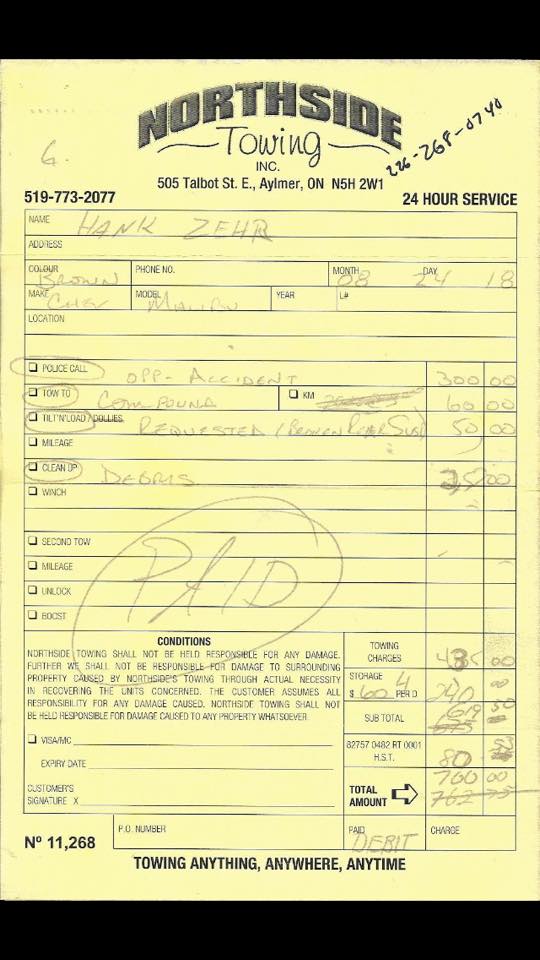 NORTHSIDE
Towing
INC.
6.
226-268-0740
505 Talbot St. E., Aylmer, ON N5H 2W1
519-773-2077 24 HOUR SERVICE
NAME HANK ZEHR
ADDRESS
COLOUR BROWN PHONE NO. MONTH 08 DAY 24 18
MAKE CHEV MODEL MALIBU YEAR L#
LOCATION
POLICE CALL OPP - ACCIDENT 300 00
TOW TO COMPOUND KM 60 00
TILT'N'LOAD / DOLLIES REQUESTED (BROKEN REAR SUS) 50 00
MILEAGE
CLEAN UP DEBRIS 25 00
WINCH
SECOND TOW
MILEAGE
UNLOCK
BOOST
PAID
CONDITIONS
NORTHSIDE TOWING SHALL NOT BE HELD RESPONSIBLE FOR ANY DAMAGE.
FURTHER WE SHALL NOT BE RESPONSIBLE FOR DAMAGE TO SURROUNDING
PROPERTY CAUSED BY NORTHSIDE'S TOWING THROUGH ACTUAL NECESSITY
IN RECOVERING THE UNITS CONCERNED. THE CUSTOMER ASSUMES ALL
RESPONSIBILITY FOR ANY DAMAGE CAUSED. NORTHSIDE TOWING SHALL NOT
BE HELD RESPONSIBLE FOR DAMAGE CAUSED TO ANY PROPERTY WHATSOEVER.
TOWING CHARGES 435 00
STORAGE 4
$ 60 PER D 240 00
SUB TOTAL 619 50
675
82757 0482 RT 0001
H.S.T. 80 53
TOTAL AMOUNT 700 00
762 75
VISA/MC
EXPIRY DATE
CUSTOMER'S
SIGNATURE X
Nº 11,268 P.O. NUMBER PAID DEBIT CHARGE
TOWING ANYTHING, ANYWHERE, ANYTIME